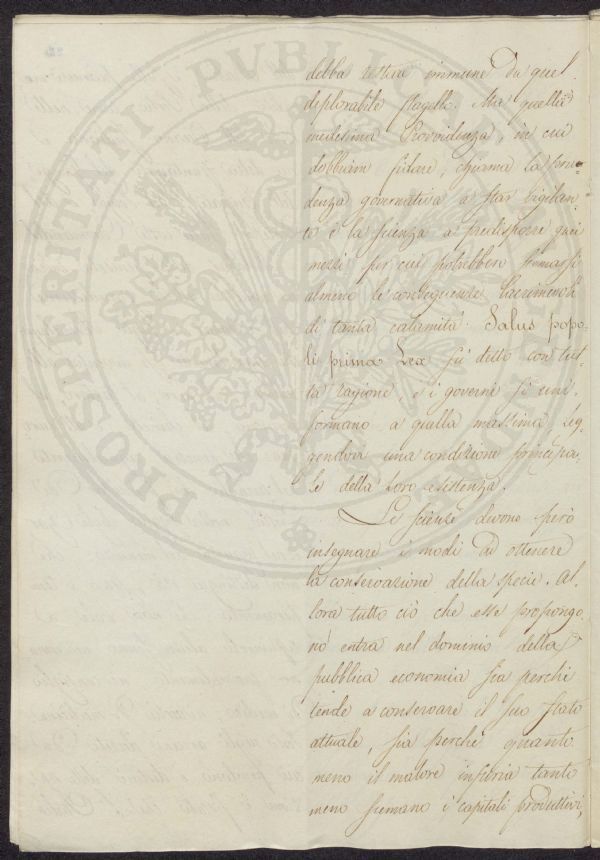 debba restare immune da quel
deplorabile flagello. Ma quella
medesima Provvidenza, in cui
dobbiam fidare, chiama la pru-
denza governativa a star vigilan-
te e la scienza a predisporre quei
mezzi per cui potrebbero scemarsi
almeno le conseguenze lacrimevoli
di tanta calamità. Salus popo-
li prima Lex fù detto con tut-
ta ragione, e i governi si uni-
formano a quella massima leg-
gendovi una condizione principa-
le della loro esistenza.
Le scienze devono però
insegnare i modi ad ottenere
la conservazione della specie. Al-
lora tutto ciò che esse propongo-
no entra nel dominio della
pubblica economia sia perchè
tende a conservare il suo stato
attuale, sia perchè quanto
meno il malore infieria tanto
meno scemano i capitali produttivi,
PROSPERITATI PVBLICAE